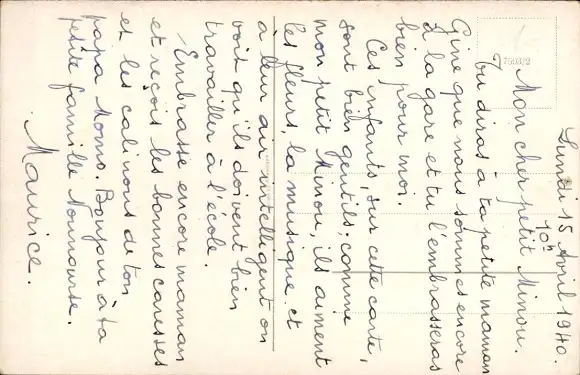 Lundi 15 Avril 1940.
10h
7503/2
Mon cher petit Minou.
Tu diras à ta petite maman
Gine que nous sommes encore
à la gare et tu l'embrasseras
bien pour moi.
Ces enfants, sur cette carte,
sont bien gentils. comme
mon petit Minou, ils aiment
les fleurs, la musique. et
à leur air intelligent on
voit qu'ils doivent bien
travailler à l'école.
Embrasse encore maman
et reçois les bonnes caresses
et les calinous de ton
papa Momo. Bonjour à ta
petite famille
Maurice.